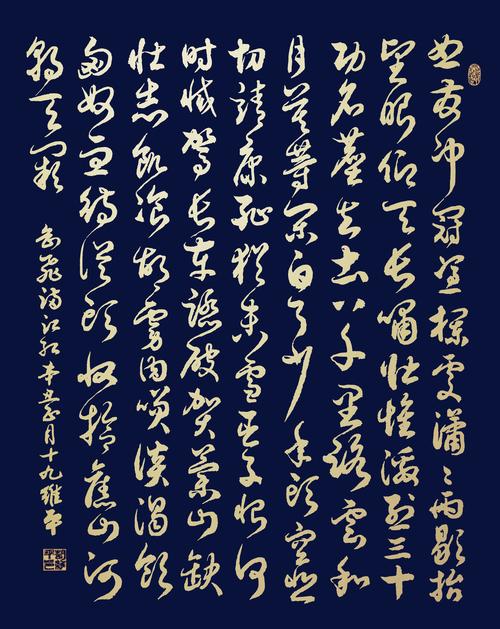 怒髮冲冠凭欄處瀟〻雨歇抬
望眼仰天長嘯壯懷激烈三十
功名塵與土八千里路雲和
月莫等閑白了少年頭空悲
切靖康恥猶未雪臣子恨何
時滅駕長車踏破賀蘭山缺
壯志飢餐胡虜肉笑談渴飲
匈奴血待從頭收拾舊山河
朝天闕
岳飛滿江紅 月十九維平